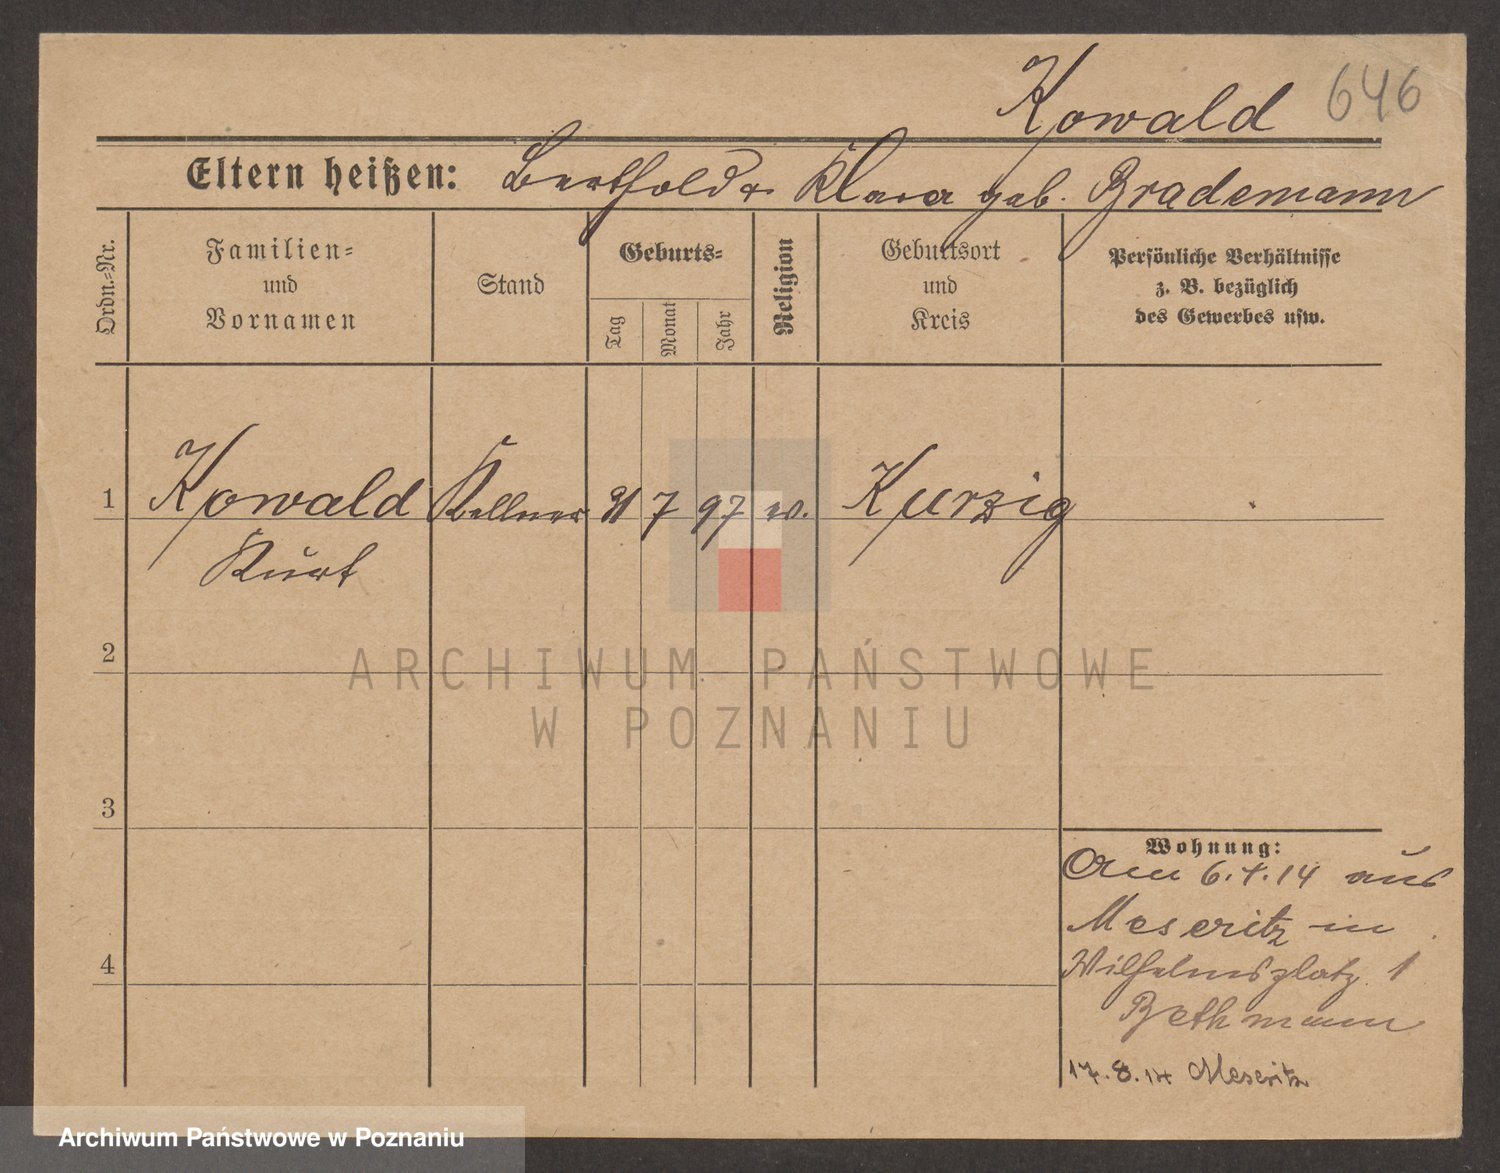 Kowald 646
Eltern heißen: Berthold u. Klara geb. Brademann
Ordn.-Nr.
Familien-
und
Vornamen
Stand
Geburts-
Tag
Monat
Jahr
Religion
Geburtsort
und
Kreis
Persönliche Verhältnisse
z. B. bezüglich
des Gewerbes usw.
1 Kowald Kellner 31 7 97 ev. Kurzig
Kurt
2
ARCHIWUM PAŃSTWOWE
W POZNANIU
3
Wohnung:
Am 6.4.14 aus
Meseritz in
4
Wilhelmsplatz 1
Bethmann
17.8.14 Meseritz
Archiwum Państwowe w Poznaniu